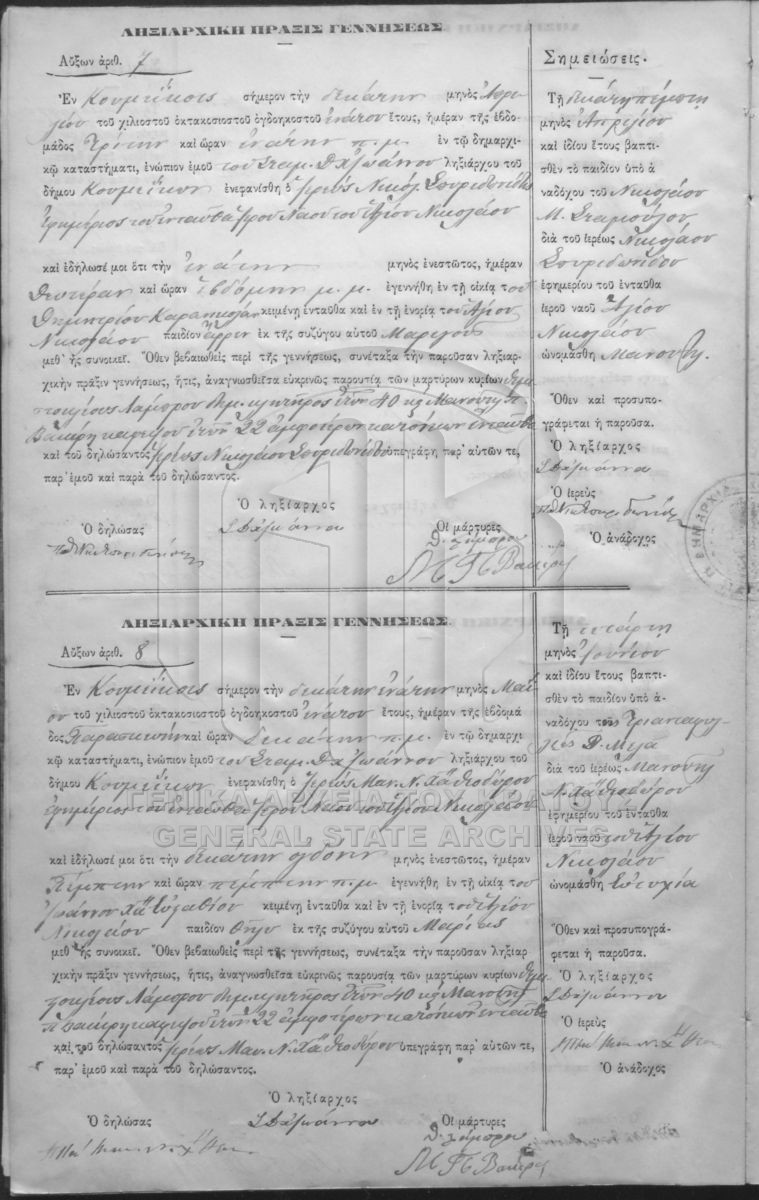 ΛΗΞΙΑΡΧΙΚΗ ΠΡΑΞΙΣ ΓΕΝΝΗΣΕΩΣ
Αὔξων ἀριθ. 7
Ἐν Κουμεΐκοις σήμερον τὴν δεκάτην μηνὸς Ἀπρι
λίου τοῦ χιλιοστοῦ ὀκτακοσιοστοῦ ὀγδοηκοστοῦ ἐνάτου ἔτους, ἡμέραν τῆς ἑβδο-
μάδος Τρίτην καὶ ὥραν ἐνάτην π.μ. ἐν τῷ δημαρχι-
κῷ καταστήματι, ἐνώπιον ἐμοῦ τοῦ Σταμ. Δ Χ"Ἰωάννου ληξιάρχου τοῦ
δήμου Κουμεΐκων ἐνεφανίσθη ὁ ἱερεὺς Νικόλ. Σπυριδωνίδης
ἐφημέριος τοῦ ἐνταῦθα ἱεροῦ Ναοῦ τοῦ Ἁγίου Νικολάου
καὶ ἐδήλωσέ μοι ὅτι τὴν ἐνάτην μηνὸς ἐνεστῶτος, ἡμέραν
Δευτέραν καὶ ὥραν ἑβδόμην μ.μ. ἐγεννήθη ἐν τῇ οἰκίᾳ τοῦ
Δημητρίου κειμένῃ ἐνταῦθα καὶ ἐν τῇ ἐνορίᾳ τοῦ Ἁγίου
Νικολάου παιδίον ἄρρεν ἐκ τῆς συζύγου αὐτοῦ Μαριγοῦς
μεθ᾽ ἧς συνοικεῖ. Ὅθεν βεβαιωθεὶς περὶ τῆς γεννήσεως, συνέταξα τὴν παροῦσαν ληξιαρ-
χικὴν πρᾶξιν γεννήσεως, ἥτις, ἀναγνωσθεῖσα εὐκρινῶς παρουσίᾳ τῶν μαρτύρων κυρίων Θεμι
στοκλέους Λάμπρου δημ. κλητῆρος ἐτῶν 40 κ Μανουὴλ Π.
Βακίρη καφεψοῦ ἐτῶν 22 ἀμφοτέρων κατοίκων ἐνταῦθα
καὶ τοῦ δηλώσαντος ἱερέως Νικολάου Σπυριδωνίδου ὑπεγράφη παρ᾽ αὐτῶν τε,
παρ᾽ ἐμοῦ καὶ παρὰ τοῦ δηλώσαντος.
Ὁ ληξίαρχος
Ὁ δηλώσας Σ Δ Χ"Ἰωάννου Οἱ μάρτυρες
Θ. Λάμπρου
Μ Π Βακίρης
Σημειώσεις.
Τῇ δεκάτῃ πέμπτῃ
μηνὸς Ἀπριλίου
καὶ ἰδίου ἔτους βαπτι-
σθὲν τὸ παιδίον ὑπὸ ἀ
ναδόχου τοῦ Νικολάου
Μ. Σταμούλου
διὰ τοῦ ἱερέως Νικολάου
Σπυριδωνίδου
ἐφημερίου τοῦ ἐνταῦθα
ἱεροῦ ναοῦ Ἁγίου
Νικολάου
ὠνομάσθη Μανουήλ.
Ὅθεν καὶ προσυπο-
γράφεται ἡ παροῦσα.
Ὁ ληξίαρχος
Σ Δ Χ"Ἰωάννου
Ὁ ἱερεὺς
Ὁ ἀνάδοχος
ΛΗΞΙΑΡΧΙΚΗ ΠΡΑΞΙΣ ΓΕΝΝΗΣΕΩΣ
Αὔξων ἀριθ. 8
Ἐν Κουμεΐκοις σήμερον τὴν δεκάτην ἐνάτην μηνὸς Μαΐ
ου τοῦ χιλιοστοῦ ὀκτακοσιοστοῦ ὀγδοηκοστοῦ ἐνάτου ἔτους, ἡμέραν τῆς ἑβδομά
δος Παρασκευὴν καὶ ὥραν δεκάτην π.μ. ἐν τῷ δημαρχι
κῷ καταστήματι, ἐνώπιον ἐμοῦ τοῦ Σταμ. Δ Χ"Ἰωάννου ληξιάρχου τοῦ
δήμου Κουμεΐκων ἐνεφανίσθη ὁ ἱερεὺς Μαν. Ν. Χ"Θεοδώρου
ἐφημέριος τοῦ ἐνταῦθα ἱεροῦ Ναοῦ τοῦ Ἁγίου Νικολάου
καὶ ἐδήλωσέ μοι ὅτι τὴν δεκάτην ὀγδόην μηνὸς ἐνεστῶτος, ἡμέραν
Πέμπτην καὶ ὥραν πέμπτην π.μ. ἐγεννήθη ἐν τῇ οἰκίᾳ τοῦ
Ἰωάννου Χ"Εὐσταθίου κειμένῃ ἐνταῦθα καὶ ἐν τῇ ἐνορίᾳ τοῦ Ἁγίου
Νικολάου παιδίον θῆλυ ἐκ τῆς συζύγου αὐτοῦ Μαρίας
μεθ᾽ ἧς συνοικεῖ. Ὅθεν βεβαιωθεὶς περὶ τῆς γεννήσεως, συνέταξα τὴν παροῦσαν ληξιαρ
χικὴν πρᾶξιν γεννήσεως, ἥτις, ἀναγνωσθεῖσα εὐκρινῶς παρουσίᾳ τῶν μαρτύρων κυρίων Θεμι
στοκλέους Λάμπρου δημ. κλητῆρος ἐτῶν 40 κ Μανουὴλ
Π Βακίρη καφεψοῦ ἐτῶν 22 ἀμφοτέρων κατοίκων ἐνταῦθα
καὶ τοῦ δηλώσαντος ἱερέως Μαν. Ν. Χ"Θεοδώρου ὑπεγράφη παρ᾽ αὐτῶν τε,
παρ᾽ ἐμοῦ καὶ παρὰ τοῦ δηλώσαντος.
Ὁ ληξίαρχος
Ὁ δηλώσας Σ Δ Χ"Ἰωάννου Οἱ μάρτυρες
Θ. Λάμπρου
Μ Π Βακίρης
Τῇ τετάρτῃ
μηνὸς Ἰουνίου
καὶ ἰδίου ἔτους βαπτι-
σθὲν τὸ παιδίον ὑπὸ ἀ-
ναδόχου τῆς Τριανταφυλ
λιᾶς
διὰ τοῦ ἱερέως Μανουὴλ
Ν. Χ"Θεοδώρου
ἐφημερίου τοῦ ἐνταῦθα
ἱεροῦ ναοῦ τοῦ Ἁγίου
Νικολάου
ὠνομάσθη Εὐτυχία
Ὅθεν καὶ προσυπογρά-
φεται ἡ παροῦσα.
Ὁ ληξίαρχος
Σ Δ Χ"Ἰωάννου
Ὁ ἱερεὺς
Ὁ ἀνάδοχος
ΓΕΝΙΚΑ ΑΡΧΕΙΑ ΤΟΥ ΚΡΑΤΟΥΣ
GENERAL STATE ARCHIVES